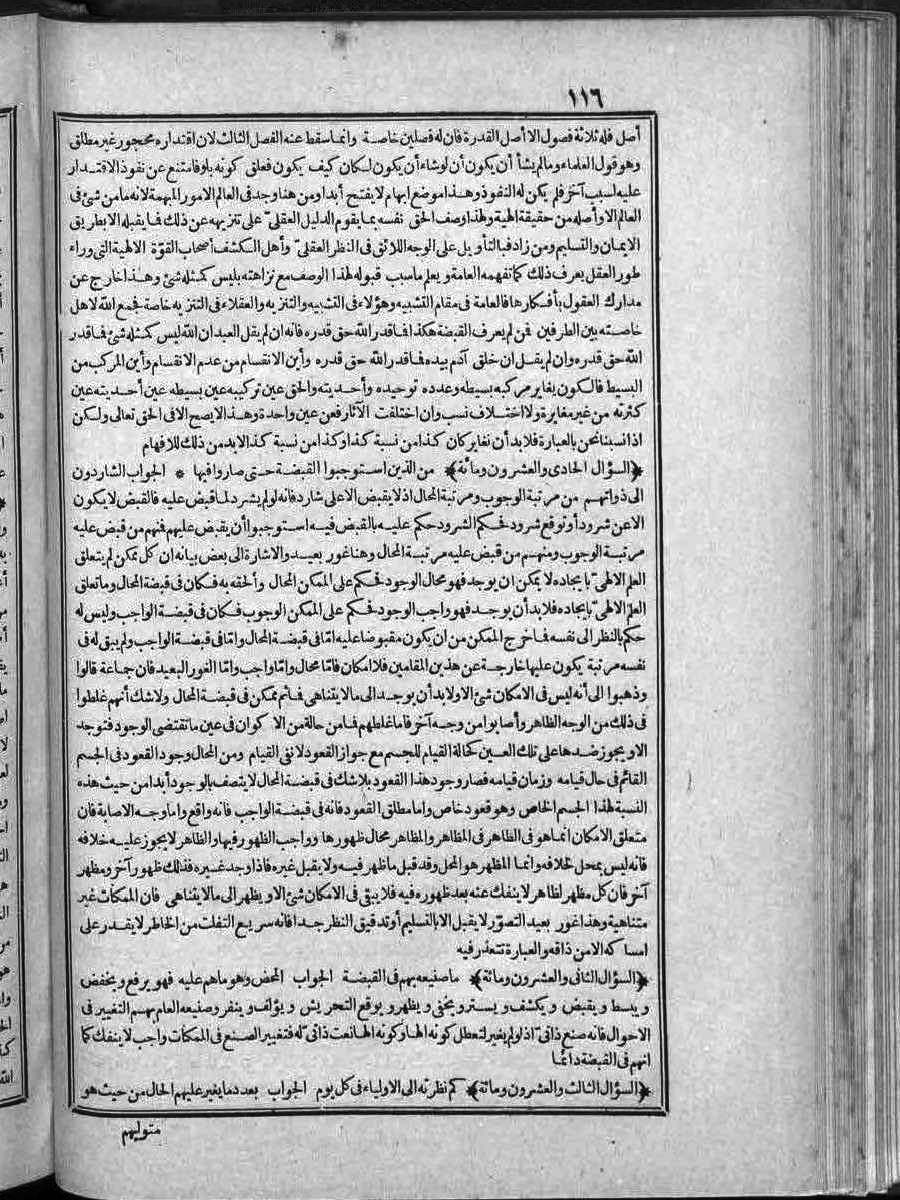 ١١٦
أصل فله ثلاثة فصول الا أصل القدرة فان له فصلين خاصة وانما سقط عنه الفصل الثالث لان اقتداره محجور غير مطلق
وهو قول العلماء وما لم يشأ أن يكون أن لو شاء أن يكون لكان كيف يكون فعلق كونه بلو فامتنع عن نفوذ الاقتدار
عليه لسبب آخر فلم يكن له النفوذ وهذا موضع ابهام لا يفتح أبدا ومن هنا وجد فى العالم الامور المبهمة لانه ما من شئ فى
العالم الا وأصله من حقيقة الهية ولهذا وصف الحق نفسه بما يقوم الدليل العقلىّ على تنزيهه عن ذلك فما يقبله الا بطريق
الايمان والتسليم ومن زاد فبالتأويل على الوجه اللائق فى النظر العقلىّ وأهل الكشف أصحاب القوّة الالهية التى وراء
طور العقل يعرف ذلك كما تفهمه العامة ويعلم ما سبب قبوله لهذا الوصف مع نزاهته بليس كمثله شئ وهذا خارج عن
مدارك العقول بأفكارها فالعامة فى مقام التشبيه وهؤلاء فى التشبيه والتنزيه والعقلاء فى التنزيه خاصة فجمع الله لاهل
خاصته بين الطرفين فمن لم يعرف القبضة هكذا فما قدر الله حق قدره فانه ان لم يقل العبد ان الله ليس كمثله شئ فما قدر
الله حق قدره وان لم يقل ان خلق آدم بيده فما قدر الله حق قدره وأين الانقسام من عدم الانقسام وأين المركب من
البسيط فالكون يغاير مركبه بسيطه وعدده توحيده وأحديته والحق عين تركيبه عين بسيطه عين أحديته عين
كثرته من غير مغايرة ولا اختلاف نسب وان اختلفت الآثار فعن عين واحدة وهذا لا يصح الا فى الحق تعالى ولكن
اذا نسبنا نحن بالعبارة فلا بد أن نغاير كان كذا من نسبة كذا وكذا من نسبة كذا لا بد من ذلك للافهام
﴿السؤال الحادى والعشرون ومائة﴾ من الذين استوجبوا القبضة حتى صاروا فيها * الجواب الشاردون
الى ذواتهم من مرتبة الوجوب ومرتبة المحال اذ لا يقبض الا على شارد فانه لو لم يشرد لما قبض عليه فالقبض لا يكون
الا عن شرود أو توقع شرود فحكم الشرود حكم عليه بالقبض فيه استوجبوا أن يقبض عليهم فمنهم من قبض عليه
مرتبة الوجوب ومنهم من قبض عليه مرتبة المحال وهنا غور بعيد والاشارة الى بعض بيانه ان كل ممكن لم يتعلق
العلم الالهىّ بايجاده لا يمكن ان يوجد فهو محال الوجود فحكم على الممكن المحال وألحقه به فكان فى قبضة المحال وما تعلق
العلم الالهىّ بايجاده فلا بد أن يوجد فهو واجب الوجود فحكم على الممكن الوجوب فكان فى قبضة الواجب وليس له
حكم بالنظر الى نفسه فما خرج الممكن من ان يكون مقبوضا عليه امّا فى قبضة المحال وامّا فى قبضة الواجب ولم يبق له فى
نفسه مرتبة يكون عليها خارجة عن هذين المقامين فلا امكان فامّا محال وامّا واجب وامّا الغور البعيد فان جماعة قالوا
وذهبوا الى أنه ليس فى الامكان شئ الا ولا بد أن يوجد الى ما لا يتناهى فما ثم ممكن فى قبضة المحال ولا شك أنهم غلطوا
فى ذلك من الوجه الظاهر وأصابوا من وجه آخر فاما غلطهم فما من حالة من الاكوان فى عين ما تقتضى الوجود فتوجد
الا ويجوز ضدها على تلك العين كحالة القيام للجسم مع جواز القعود لا نفى القيام ومن المحال وجود القعود فى الجسم
القائم فى حال قيامه وزمان قيامه فصار وجود هذا القعود بلا شك فى قبضة المحال لا يتصف بالوجود أبدا من حيث هذه
النسبة لهذا الجسم الخاص وهو قعود خاص واما مطلق القعود فانه فى قبضة الواجب فانه واقع واما وجه الاصابة فان
متعلق الامكان انما هو فى الظاهر فى المظاهر والمظاهر محال ظهورها وواجب الظهور فيها والظاهر لا يجوز عليه خلافه
فانه ليس بمحل لخلافه وانما المظهر هو المحل وقد قبل ما ظهر فيه ولا يقبل غيره فاذا وجد غيره فذلك ظهور آخر ومظهر
آخر فان كل مظهر لظاهر لا ينفك عنه بعد ظهوره فيه فلا يبقى فى الامكان شئ الا ويظهر الى ما لا يتناهى فان الممكنات غير
متناهية وهذا غور بعيد التصوّر لا يقبل الا بالتسليم أو تدقيق النظر جدا فانه سريع التفلت من الخاطر لا يقدر على
امساكه الا من ذاقه والعبارة تتعذر فيه
﴿السؤال الثانى والعشرون ومائة﴾ ما صنيعه بهم فى القبضة الجواب المحض وهو ما هم عليه فهو يرفع ويخفض
ويبسط ويقبض ويكشف ويستر ويخفى ويظهر ويوقع التحريش ويؤلف وينفر وصنيعه العام بهم التغيير فى
الاحوال فانه صنع ذاتىّ اذ لو لم يغير لتعطل كونه الها وكونه الها نعت ذاتىّ له فتغيير الصنع فى الممكنات واجب لا ينفك كما
انهم فى القبضة دائما
﴿السؤال الثالث والعشرون ومائة﴾ كم نظرته الى الاولياء فى كل يوم الجواب بعدد ما يغير عليهم الحال من حيث هو
متوليهم